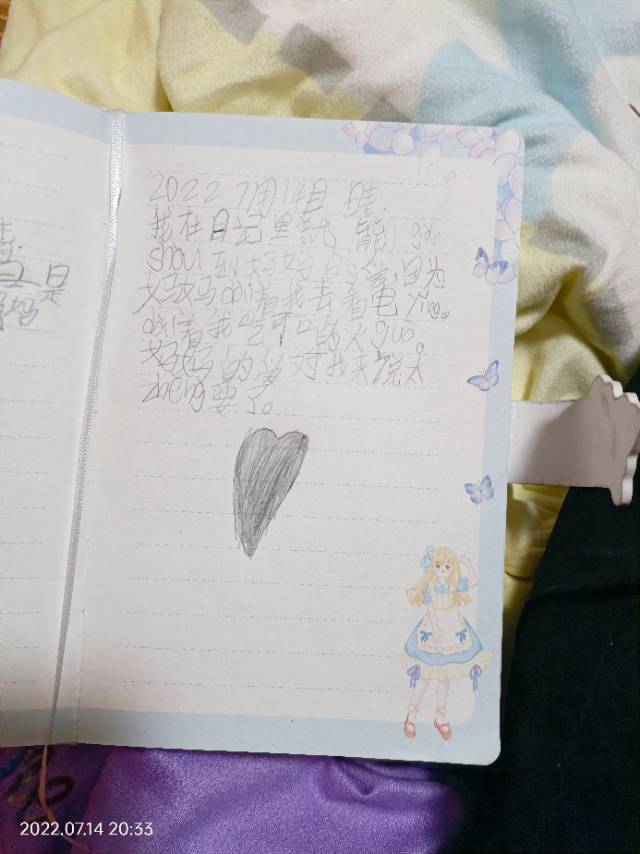 2022 7月14日 晴
我在日记里就 能 gǎn
shou 到妈妈 的爱,因为
妈妈 dai着我去看电 ying。
dai着我吃可口的火 guo。
妈妈 的爱对我来说太
zhe 要了。
是
妈妈
2022.07.14 20:33